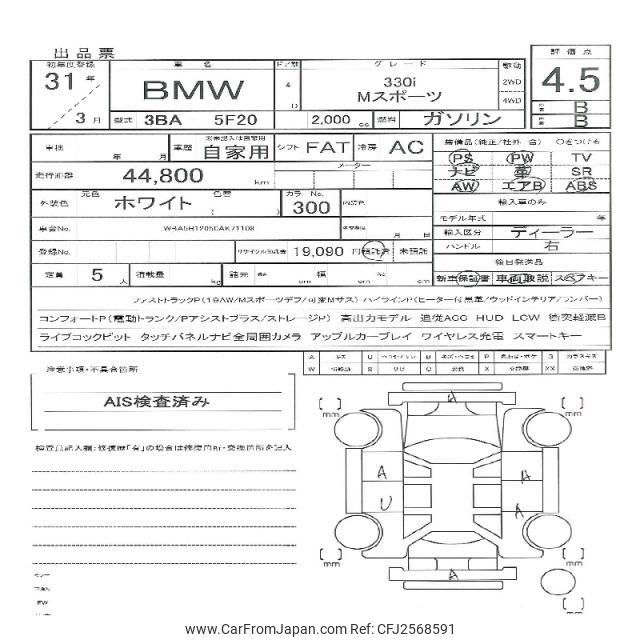 出品票
初年度登録 車名 ドア数 グレード 駆動 評価点
31 年 BMW 4 D 330i 2WD 4.5
3 月 Mスポーツ 4WD B
型式 3BA 5F20 2,000 cc 燃料 ガソリン B
車検 年 月 車歴 自家用 シフト FAT 冷房 AC 装備品(純正/社外 含) ○をつける
走行距離 44,800 km メーター PS PW TV
ナビ 革 SR
外装色 元色 ホワイト 色替 ( カラーNo. 300 内装色 AW エアB ABS
輸入車のみ
車台No. モデル年式 年
月 日 輸入区分 ディーラー
登録No. リサイクル預託金 19,090 円 預託済 未預託 ハンドル 右
後日発送品
定員 5 人 積載量 kg 諸元 cm 幅 cm cm 新車保証書 車両取説 スペアキー
ファストラックP(19AW/Mスポーツデフ/可変Mサス) ハイラインP(ヒーター付黒革/ウッドインテリア/ランバー)
コンフォートP(電動トランク/Pアシストプラス/ストレージP) 高出力モデル 追従ACC HUD LCW 衝突軽減B
ライブコックピット タッチパネルナビ全周囲カメラ アップルカープレイ ワイヤレス充電 スマートキー
A U B P 3
W S C X XX
注意事項・不具合箇所
AIS検査済み
検査員記入欄:修復歴「有」の場合は修復箇所・交換箇所を記入
A
[ ] mm [ ] mm
A A
U A
[ ] mm [ ] mm
A
[ ] mm
© www.CarFromJapan.com Ref: CFJ2568591